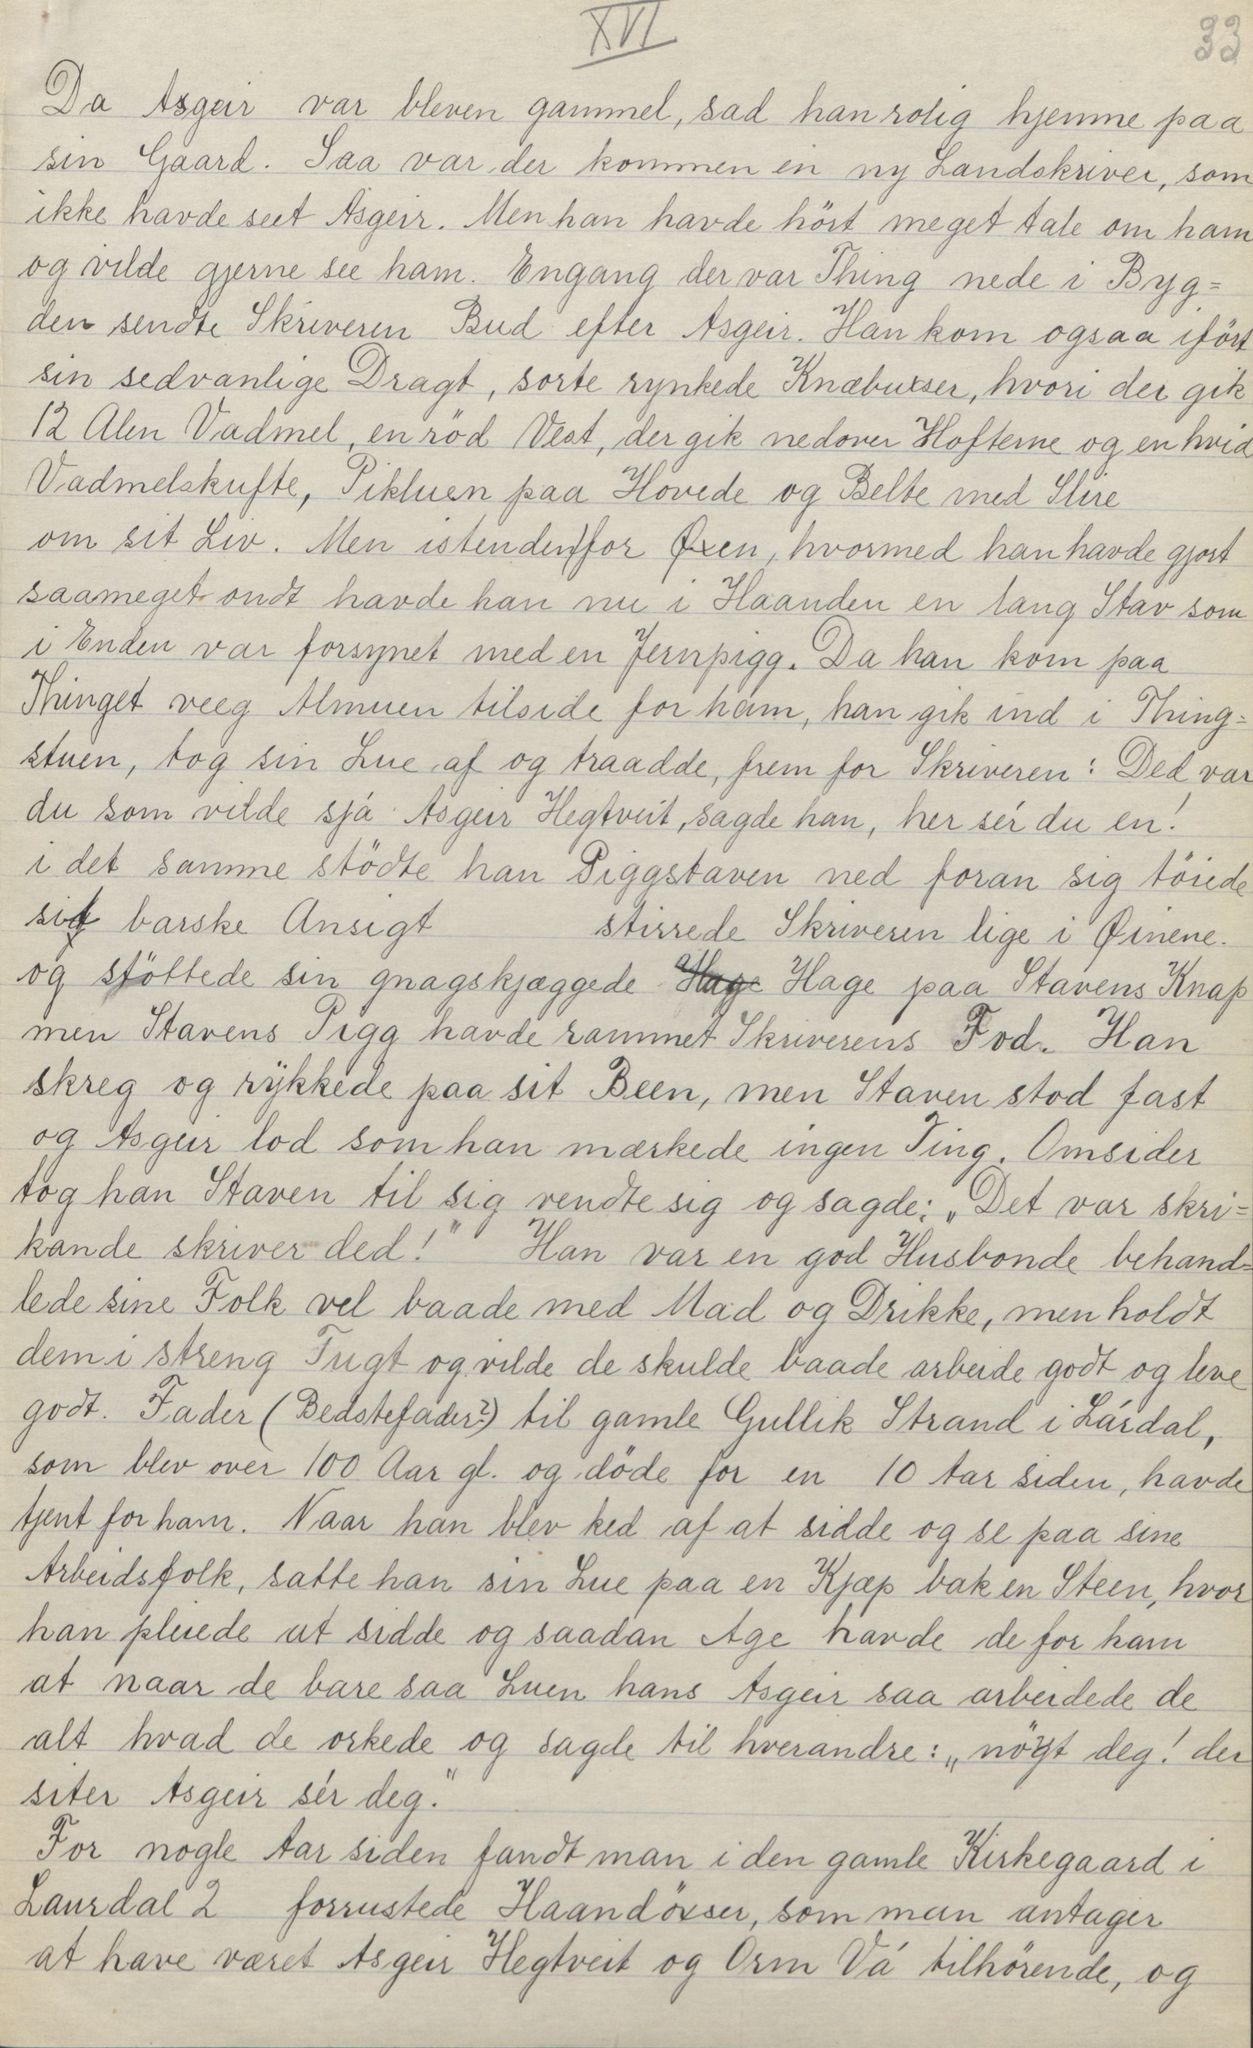 XVI
33
Da Asgeir var bleven gammel, sad han rolig hjemme paa
sin Gaard. Saa var der kommen en ny Landskriver, som
ikke havde seet Asgeir. Men han havde hört meget tale om ham
og vilde gjerne see ham. Engang der var Thing nede i Byg=
den sendte Skriveren Bud efter Asgeir. Han kom ogsaa ifört
sin sedvanlige Dragt, sorte rynkede Knæbuxser, hvori der gik
12 Alen Vadmel, en röd Vest, der gik nedover Hofterne og en hvid
Vadmelskufte, Pikluen paa Hovede og Belte med Slire
om sit Liv. Men istenden for Øxen, hvormed han havde gjort
saameget ondt havde han nu i Haanden en lang Stav som
i Enden var forsynet med en Jernpigg. Da han kom paa
Thinget veeg Almuen tilside for ham, han gik ind i Thing=
stuen, tog sin Lue af og traadde, frem for Skriveren: Ded var
du som vilde sjá Asgeir Hegtveit, sagde han, her sér du en!
i det samme stödte han Piggstaven ned foran sig töiede
sit barske Ansigt stirrede Skriveren lige i Øinene.
og stöttede sin gnagskjæggede Hage Hage paa Stavens Knap
men Stavens Pigg havde rammet Skriverens Fod. Han
skreg og rykkede paa sit Been, men Staven stod fast
og Asgeir lod som han mærkede ingen Ting. Omsider
tog han Staven til sig vendte sig og sagde: „Det var skri=
kande skriver ded!" Han var en god Husbonde behand=
lede sine Folk vel baade med Mad og Drikke, men holdt
dem i streng Tugt og vilde de skulde baade arbeide godt og leve
godt. Fader (Bedstefader?) til gamle Gullik Strand i Lárdal,
som blev over 100 Aar gl. og döde for en 10 Aar siden, havde
tjent for ham. Naar han blev ked af at sidde og se paa sine
Arbeidsfolk, satte han sin Lue paa en Kjæp bak en Steen, hvor
han pleiede at sidde og saadan Age havde de for ham
at naar de bare saa Luen hans Asgeir saa arbeidede de
alt hvad de orkede og sagde til hverandre: „nögt deg! der
siter Asgeir sér deg."
For nogle Aar siden fandt man i den gamle Kirkegaard i
Laurdal 2 forrustede Haandöxser, som man antager
at have været Asgeir Hegtveit og Orm Vá tilhörende, og